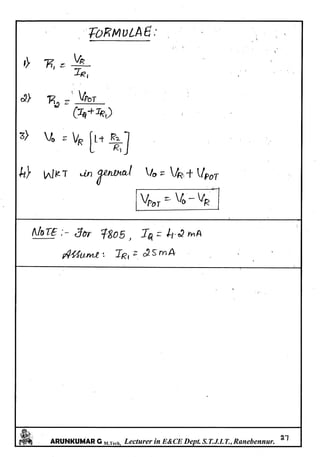 FORMULAE:
1) R₁ = V_R / I_R₁
2) R₂ = V_POT / (I_Q + I_R₁)
3) V₀ = V_R [1 + R₂/R₁]
4) WKT in general V₀ = V_R + V_POT
V_POT = V₀ - V_R
NOTE :- for 7805, I_Q = 4.2 mA
Assume : I_R₁ = 25 mA
ARUNKUMAR G M.Tech, Lecturer in E&CE Dept. S.T.J.I.T., Ranebennur. 27